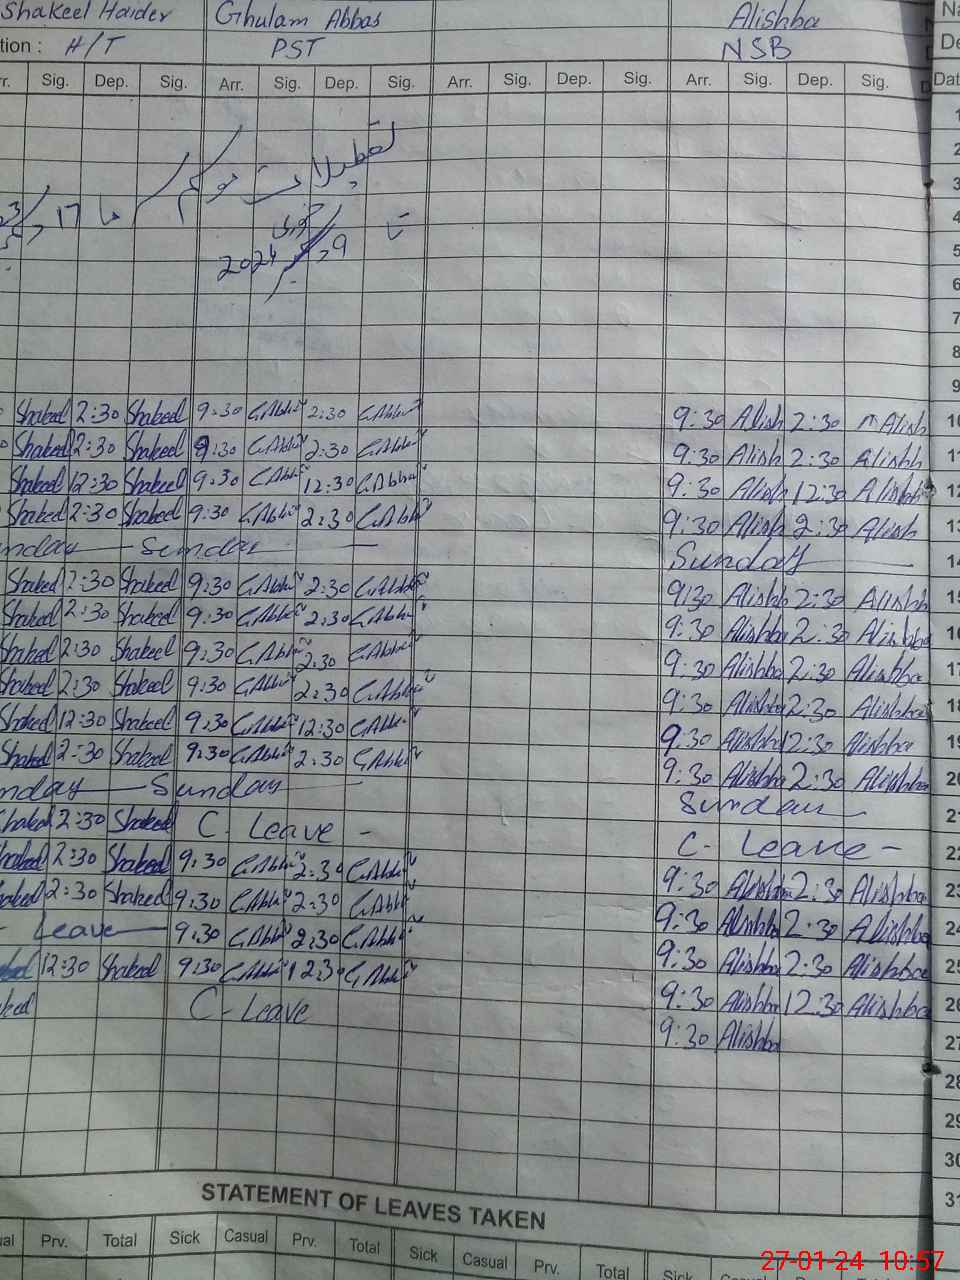 Shakeel Haider Ghulam Abbas Alishba
tion : H/T PST NSB
rr. Sig. Dep. Sig. Arr. Sig. Dep. Sig. Arr. Sig. Dep. Sig. Arr. Sig. Dep. Sig. Dat
1
2
تعطیلات موسم
3
17
4
تا 9 جنوری
2024
5
6
7
8
9
Shakeel 2:30 Shakeel 9:30 G.Abbas 2:30 G.Abbas 9:30 Alish 2:30 Alish 10
Shakeel 2:30 Shakeel 9:30 G.Abbas 2:30 G.Abbas 9:30 Alish 2:30 Alishb 11
Shakeel 12:30 Shakeel 9:30 G.Abbas 12:30 G.Abbas 9:30 Alish 12:30 Alishb 12
Shakeel 2:30 Shakeel 9:30 G.Abbas 2:30 G.Abbas 9:30 Alish 2:30 Alish 13
nday Sunday Sunday 14
Shakeel 2:30 Shakeel 9:30 G.Abbas 2:30 G.Abbas 9:30 Alishb 2:30 Alishb 15
Shakeel 2:30 Shakeel 9:30 G.Abbas 2:30 G.Abbas 9:30 Alishba 2:30 Alishba 16
Shakeel 2:30 Shakeel 9:30 G.Abbas 2:30 G.Abbas 9:30 Alishba 2:30 Alishba 17
Shakeel 2:30 Shakeel 9:30 G.Abbas 2:30 G.Abbas 9:30 Alishba 2:30 Alishba 18
Shakeel 12:30 Shakeel 9:30 G.Abbas 12:30 G.Abbas 9:30 Alishba 12:30 Alishba 19
Shakeel 2:30 Shakeel 9:30 G.Abbas 2:30 G.Abbas 9:30 Alishba 2:30 Alishba 20
nday Sunday Sunday 21
Shakeel 2:30 Shakeel C- Leave - C- Leave - 22
Shakeel 2:30 Shakeel 9:30 G.Abbas 2:30 G.Abbas 9:30 Alishba 2:30 Alishba 23
Shakeel 2:30 Shakeel 9:30 G.Abbas 2:30 G.Abbas 9:30 Alishba 2:30 Alishba 24
Leave 9:30 G.Abbas 2:30 G.Abbas 9:30 Alishba 2:30 Alishba 25
12:30 Shakeel 9:30 G.Abbas 12:30 G.Abbas 9:30 Alishba 12:30 Alishba 26
C- Leave 9:30 Alishba 27
28
29
30
31
STATEMENT OF LEAVES TAKEN
ual Prv. Total Sick Casual Prv. Total Sick Casual Prv. Total Sick Casual
27-01-24 10:57